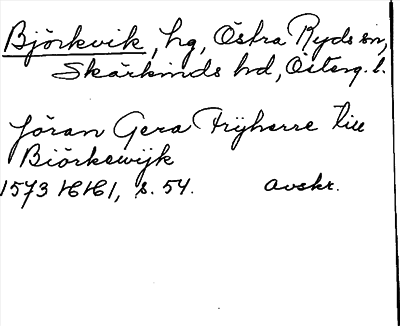 Björkvik, hg, Östra Ryds sn,
Skärkinds hd, Österg. l.
Jöran Gera Frijherre till
Biörkewijk
1573 HH1, s. 54. avskr.